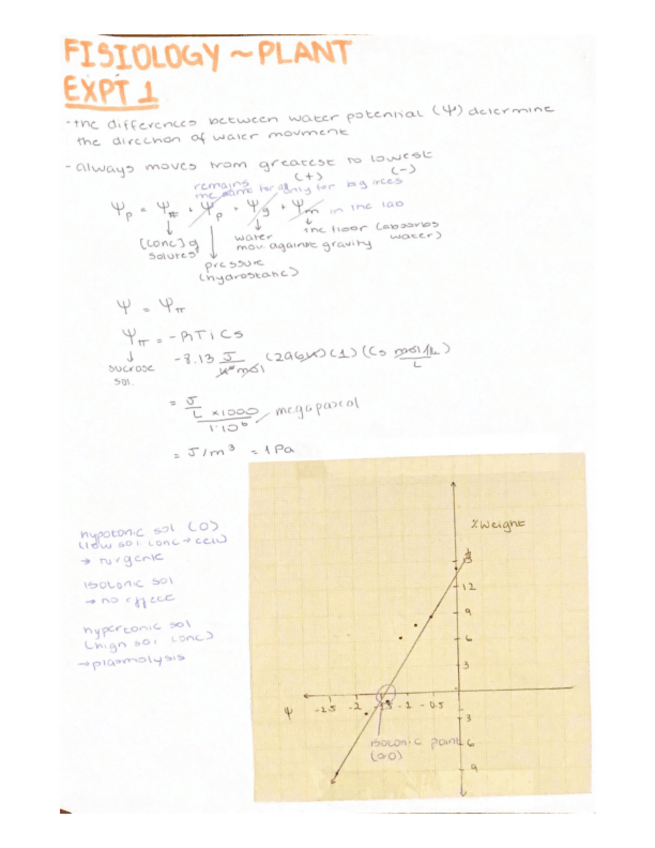 FISIOLOGY ~ PLANT
EXPT 1
- the differences between water potential (Ψ) determine
the direction of water movment
- always moves from greatest to lowest
(+) (-)
remains only for big trees
the same for all
Ψp = Ψπ + Ψp + Ψg + Ψm in the lab
[conc] of solutes
pressure (hydrostatic)
water mov. against gravity
the floor (absorbs water)
Ψ = Ψπ
Ψπ = - RTiCs
sucrose sol.
-8.13 J/K° mol (296K) (1) (Cs mol/L)
= J/L x1000/1·10⁶ megapascal
= J/m³ = 1 Pa
hypotonic sol (0)
(low sol conc → cell)
→ turgente
isotonic sol
→ no effect
hypertonic sol
(high sol conc)
→ plasmolysis
% weight
15
12
9
6
3
Ψ -2.5 -2 -1.5 -1 -0.5
3
isotonic point 6
(00)
9